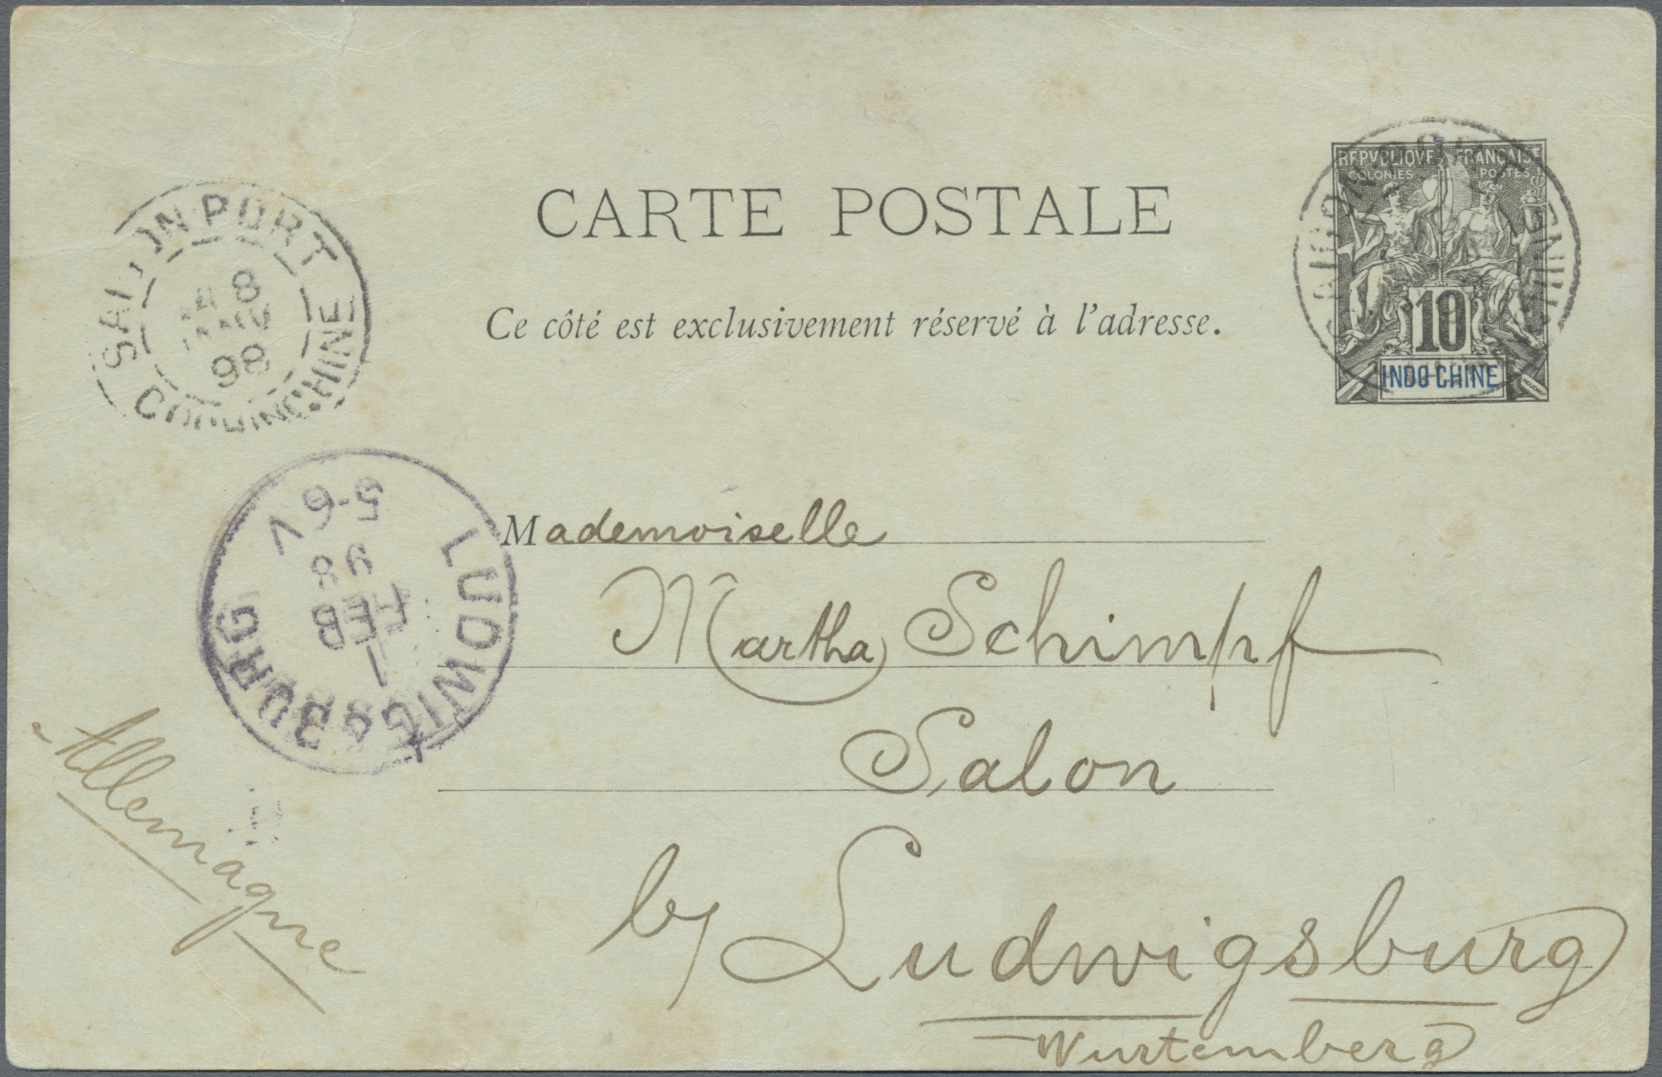 CARTE POSTALE
Ce côté est exclusivement réservé à l'adresse.
REPVBLIQVE FRANÇAISE
COLONIES POSTES
10
INDO-CHINE
SAIGON PORT
8
JANV
98
COCHINCHINE
LUDWIGSBURG
1
FEB
98
5-6V
Mademoiselle
Martha Schimpf
Salon
by Ludwigsburg
Wurtemberg
Allemagne